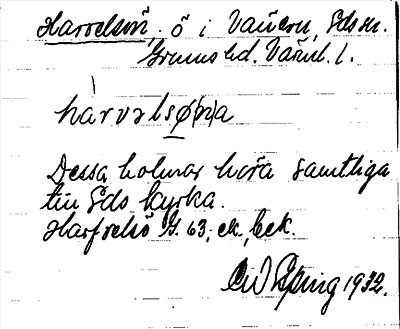 Harvelsön, ö i Vänern, Eds sn.
Grums hd. Värml. l.
hárvəlsø(n)a
Dessa holmar höra samtliga
till Eds kyrka.
Harfvelsö G. 63; ek, bek.
1932.